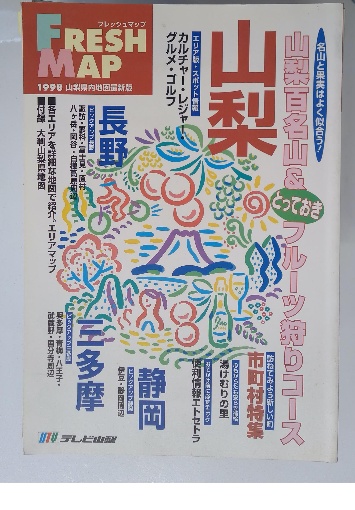 フレッシュマップ
FRESH
MAP
1998 山梨県内地図最新版
名山と果実はよく似合う!
山梨百名山&
とっておき
フルーツ狩りコース
山梨
エリア版・スポット情報
カルチャー・レジャー
グルメ・ゴルフ
■各エリアを詳細な地図で紹介。エリアマップ
■別録 大判山梨県地図
長野
静岡
伊豆・静岡周辺
三多摩
奥多摩・青梅・八王子・
武蔵野・国分寺周辺
訪ねてみよう新しい町
市町村特集
湯けむりの里
便利情報エトセトラ
UTY テレビ山梨